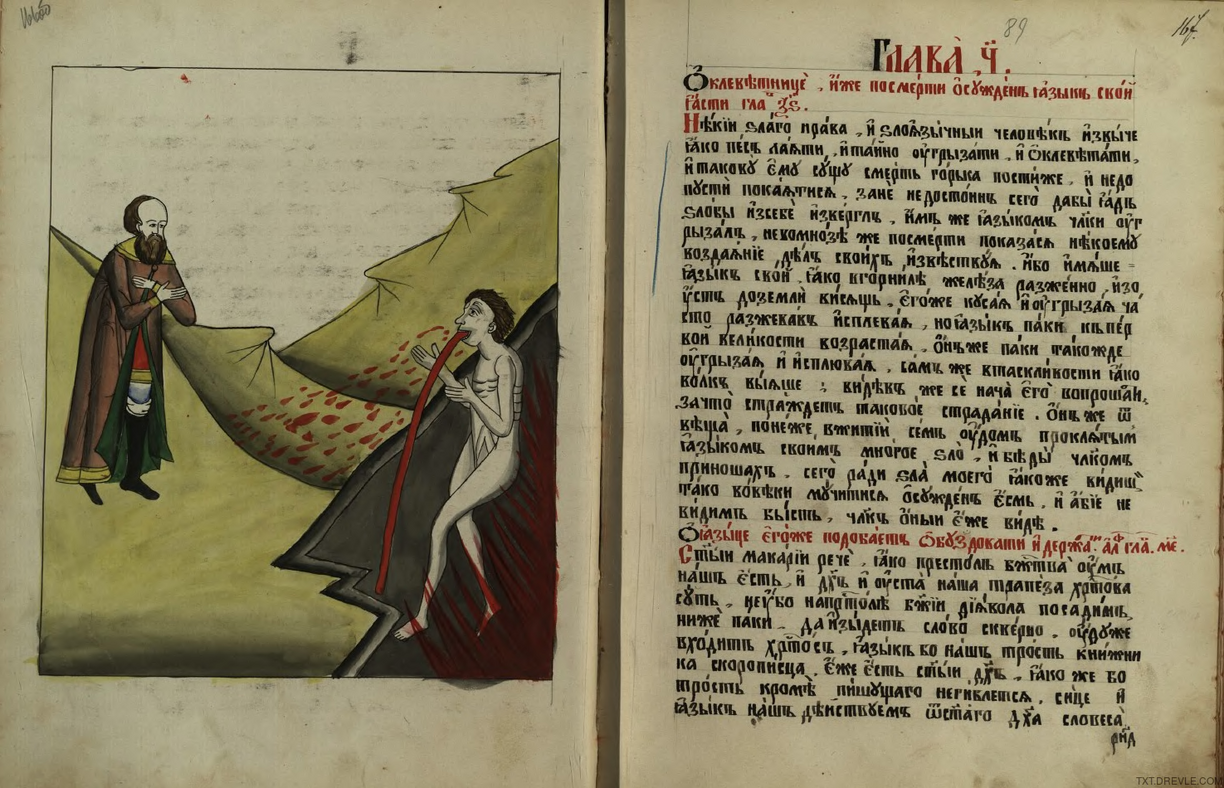 166об
89
167.
Глава̀ ч҃.
Ѡ҆клевѣтницѐ , и҆́же посмерти ѡ҆сꙋжде́нъ ꙗ҆зы́къ сво́й
ꙗ҆́сти гла
Нѣ́кїи ѕла́го нра́ва , и҆ ѕлоꙗ҆зы́чныи человѣ́къ и҆звы́че
ꙗ҆́ко пе́съ ла́ѧти , и҆та́йно ѹ҆грыза́ти , и҆ ѡ҆клевета́ти ,
и҆такову̀ є҆мꙋ̀ сꙋ́щꙋ сме́рть го́рька пости́же , и҆ недо
пꙋстѝ покаѧ́тисѧ , зане́ недосто́инъ сегѡ̀ дабы̀ ꙗ҆́дъ
ѕло́бы и҆зсебѐ и҆зве́рглъ , и҆́мъ же ꙗ҆зы́комъ чл҃ки ѹ҆г
рыза́лъ , невомно́зѣ же посме́рти показа́сѧ нѣ́коемꙋ
воздаѧ́нїе дѣ́лъ свои́хъ , и҆звѣ́ствꙋѧ . и҆́бо и҆мѧ́ше
ꙗ҆зы́къ сво́й , ꙗ҆́ко вгорни́лѣ желѣ́за разже́нно , и҆зо
ѹ҆́стъ доземлѝ висѧ́щь , є҆го́же кꙋса́ѧ и҆ѹ҆грыза́ѧ ча́
сто разжева́въ и҆сплева́ѧ , ноꙗ҆зы́къ па́ки къпе́р
вои вели́кости возраста́ѧ , ѻ҆́нъже па́ки та́кожде
ѹ҆грыза́ѧ и҆ и҆сплюва́ѧ , са́мъ же ꙗ҆́ко
во́лкъ вы́ѧше : ви́дѣвъ же сѐ нача̀ є҆го̀ вопроша́ти ,
за что̀ стра́ждетъ таково́е страда́нїе . ѻ҆́нъ же ѿ
вѣща̀ , поне́же вжитїѝ се́мъ ѹ҆́домъ проклѧ́тымъ
ꙗ҆зы́комъ свои́мъ мно́гое ѕло̀ , и҆ бѣды̀ чл҃комъ
приноша́хъ , сегѡ̀ ра́ди ѕла̀ моегѡ̀ ꙗ҆́коже ви́диши
та́ко во́вѣки мꙋ́читисѧ ѡ҆сꙋжде́нъ є҆́смь , и҆ а҆́бїе не
ви́димъ бы́сть , чл҃къ ѻ҆́ныи є҆́же ви́дѣ .
Ѡ҆ꙗ҆зы́це є҆го́же подоба́етъ ѡ҆бꙋздова́ти и҆ держа́ти гла
Ст҃ы́и мака́рїи речѐ , ꙗ҆́ко престо́лъ бж҃тва̀ ѹ҆́мъ
на́шъ є҆́сть , и҆ дх҃ъ и҆ ѹ҆ста̀ на́ша трапе́за хр҃то́ва
сꙋ́ть , неѹ҆́бо напрт҃о́лѣ бж҃їи дїѧ́вола поса́димъ ,
нижѐ па́ки , да и҆зы́детъ сло́во скве́рно , ѹ҆дꙋ́же
вхо́дитъ хр҃то́съ , ꙗ҆зы́къ бо на́шъ тро́сть кни́жни
ка скоропи́сца , є҆́же є҆́сть ст҃ы́и дх҃ъ , ꙗ҆́ко же бо
тро́сть кромѣ̀ пи́шꙋщаго , си́це и҆
ꙗ҆зы́къ на́шъ дѣ́йствꙋемъ ѿст҃а́го дх҃а словеса̀
TXT.DREVLE.COM